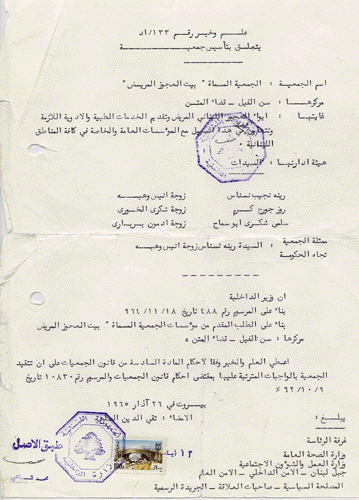 علم وخبر رقم ١٣٣/اد
يتعلق بتأسيس جمعية
اسم الجمعية : الجمعية المسماة " بيت العجوز المريض "
مركزها : سن الفيل - قضاء المتن
غايتها : ايواء اللبناني المريض وتقديم الخدمات الطبية والادوية اللازمة
وتتعاون في هذا السبيل مع المؤسسات العامة والخاصة في كافة المناطق
اللبنانية
هيئة ادارتها : السيدات
رينه نجيب نسناس زوجة انيس وهبه
روز جورج كريم زوجة شكري الخوري
سلمى شكري ابو سماح زوجة ادمون بربارى
ممثلة الجمعية : السيدة رينه نسناس زوجة انيس وهبه
تجاه الحكومة
ان وزير الداخلية
بناء على المرسوم رقم ٤٨٨ تاريخ ٩٦٤/١١/١٨
بناء على الطلب المقدم من مؤسسات الجمعية المسماة " بيت العجوز المريض
مركزها : سن الفيل - قضاء المتن
اعطي العلم والخبر وفقا لاحكام المادة السادسة من قانون الجمعيات على ان تتقيد
الجمعية بالواجبات المترتبة عليها بمقتضى احكام قانون الجمعيات والمرسوم رقم ١٠٨٣٠ تاريخ
٦٢/١٠/٩
بيروت في ٢٦ آذار ١٩٦٥
يبلغ : الامضاء : تقي الدين
غرفة الرئاسة
وزارة الصحة العامة
وزارة العمل والشؤون الاجتماعية
جبل لبنان - الامن الداخلي - الامن العام
المصلحة السياسية - صاحبات العلاقة - الجريدة الرسمية
طبق الاصل